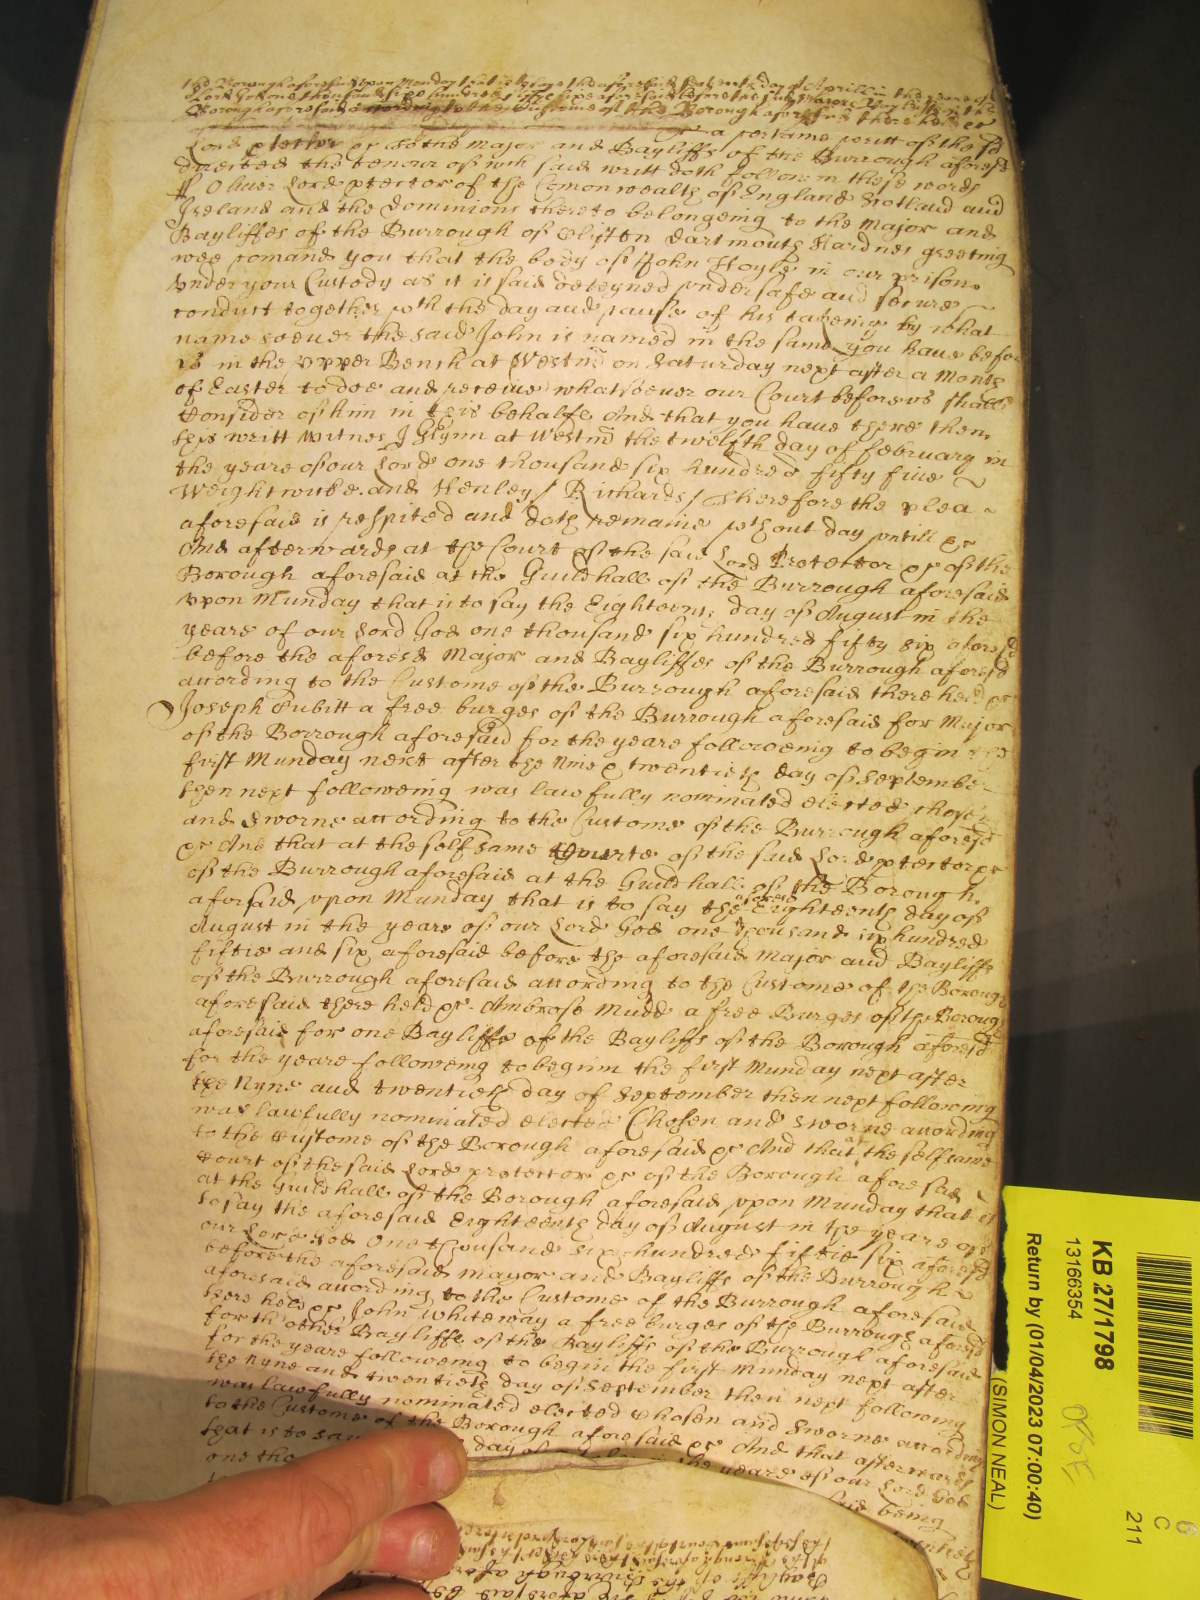 the Borough aforesaid upon Monday that is to say the aforesaid day of Aprill in the yeare of
Lord God one thousand six hundred fiftie six aforesaid before the Major and Bayliffs of the
Borough aforesaid according to the Custome of the Borough aforesaid there held &c
a certaine writt of the sd
Lord ptector &c to the Major and Bayliffs of the Burrough aforesd
directed the tenour of wch said writt doth follow in these words
ss Oliver Lord ptector of the Comonwealth of England Scotland and
Ireland and the Dominions thereto belongeing to the Major and
Bayliffes of the Burrough of Clifton Dartmouth Hardnes greeting
wee comand you that the body of John Hoyle in our prison
under your Custody as it is said deteyned under safe and secure
conduct together wth the day and cause of his takeing by what
name soever the said John is named in the same you have before
us in the Upper Bench at Westmr on Saturday next after a Month
of Easter to doe and receive whatsoever our Court before us shall
Consider of him in this behalfe And that you have there then
this writt Witnes J Glynn at Westmr the twelfth day of February in
the yeare of our Lord one thousand six hundred fifty five
Weightwicke and Henley / Richards / Therefore the plea
aforesaid is respited and doth remaine wthout day untill &c
And afterwards at the Court of the said Lord Protector &c of the
Borough aforesaid at the Guildhall of the Burrough aforesaid
upon Munday that is to say the Eighteenth day of August in the
yeare of our Lord God one thousand six hundred fifty six aforesd
before the aforesd Major and Bayliffes of the Burrough aforesd
according to the Custome of the Burrough aforesaid there held &c
Joseph Cubitt a free burges of the Burrough aforesaid for Major
of the Borrough aforesaid for the yeare followeing to begin the
first Munday next after the Nine & twentieth day of September
then next followeing was lawfully nominated elected chosen
and sworne according to the Custome of the Burrough aforesd
&c And that at the selfsame Courte of the said Lord ptector &c
of the Burrough aforesaid at the Guildhall of the Borough
aforsaid upon Munday that is to say the aforesd Eighteenth day of
August in the yeare of our Lord God one thousand six hundred
fiftie and six aforesaid before the aforesaid Major and Bayliffs
of the Burrough aforesaid according to the Custome of the Borough
aforesaid there held &c Ambrose Mudd a free Burges of the Boroug
aforesaid for one Bayliffe of the Bayliffs of the Borough aforesd
for the yeare following to begin the first Munday next after
the Nyne and twentieth day of September then next following
was lawfully nominated elected Chosen and sworne according
to the Custome of the Borough aforesaid &c And that at the selfsame
Court of the said Lord protector &c of the Borough aforesaid
at the Guildhall of the Borough aforesaid upon Munday that is
to say the aforesaid Eighteenth day of August in the yeare of
our Lord God One thousand six hundred fiftie six aforesd
before the aforesaid Mayor and Bayliffs of the Burrough
aforesaid according to the Custome of the Burrough aforesaid
there held &c John Whiteway a free burges of the Burrough aforesd
for th other Bayliffe of the Bayliffs of the Burrough aforesaid
for the yeare followeing to begin the first Munday next after
the Nyne and twentieth day of September then next following
was lawfully nominated elected Chosen and sworne according
to the Custome of the Borough aforesaid &c And that afterwards
that is to say day of the yeare of our Lord God
one tho said being
KB 27/1798
13166354
Return by (01/04/2023 07:00:40)
(SIMON NEAL)
6
C
211